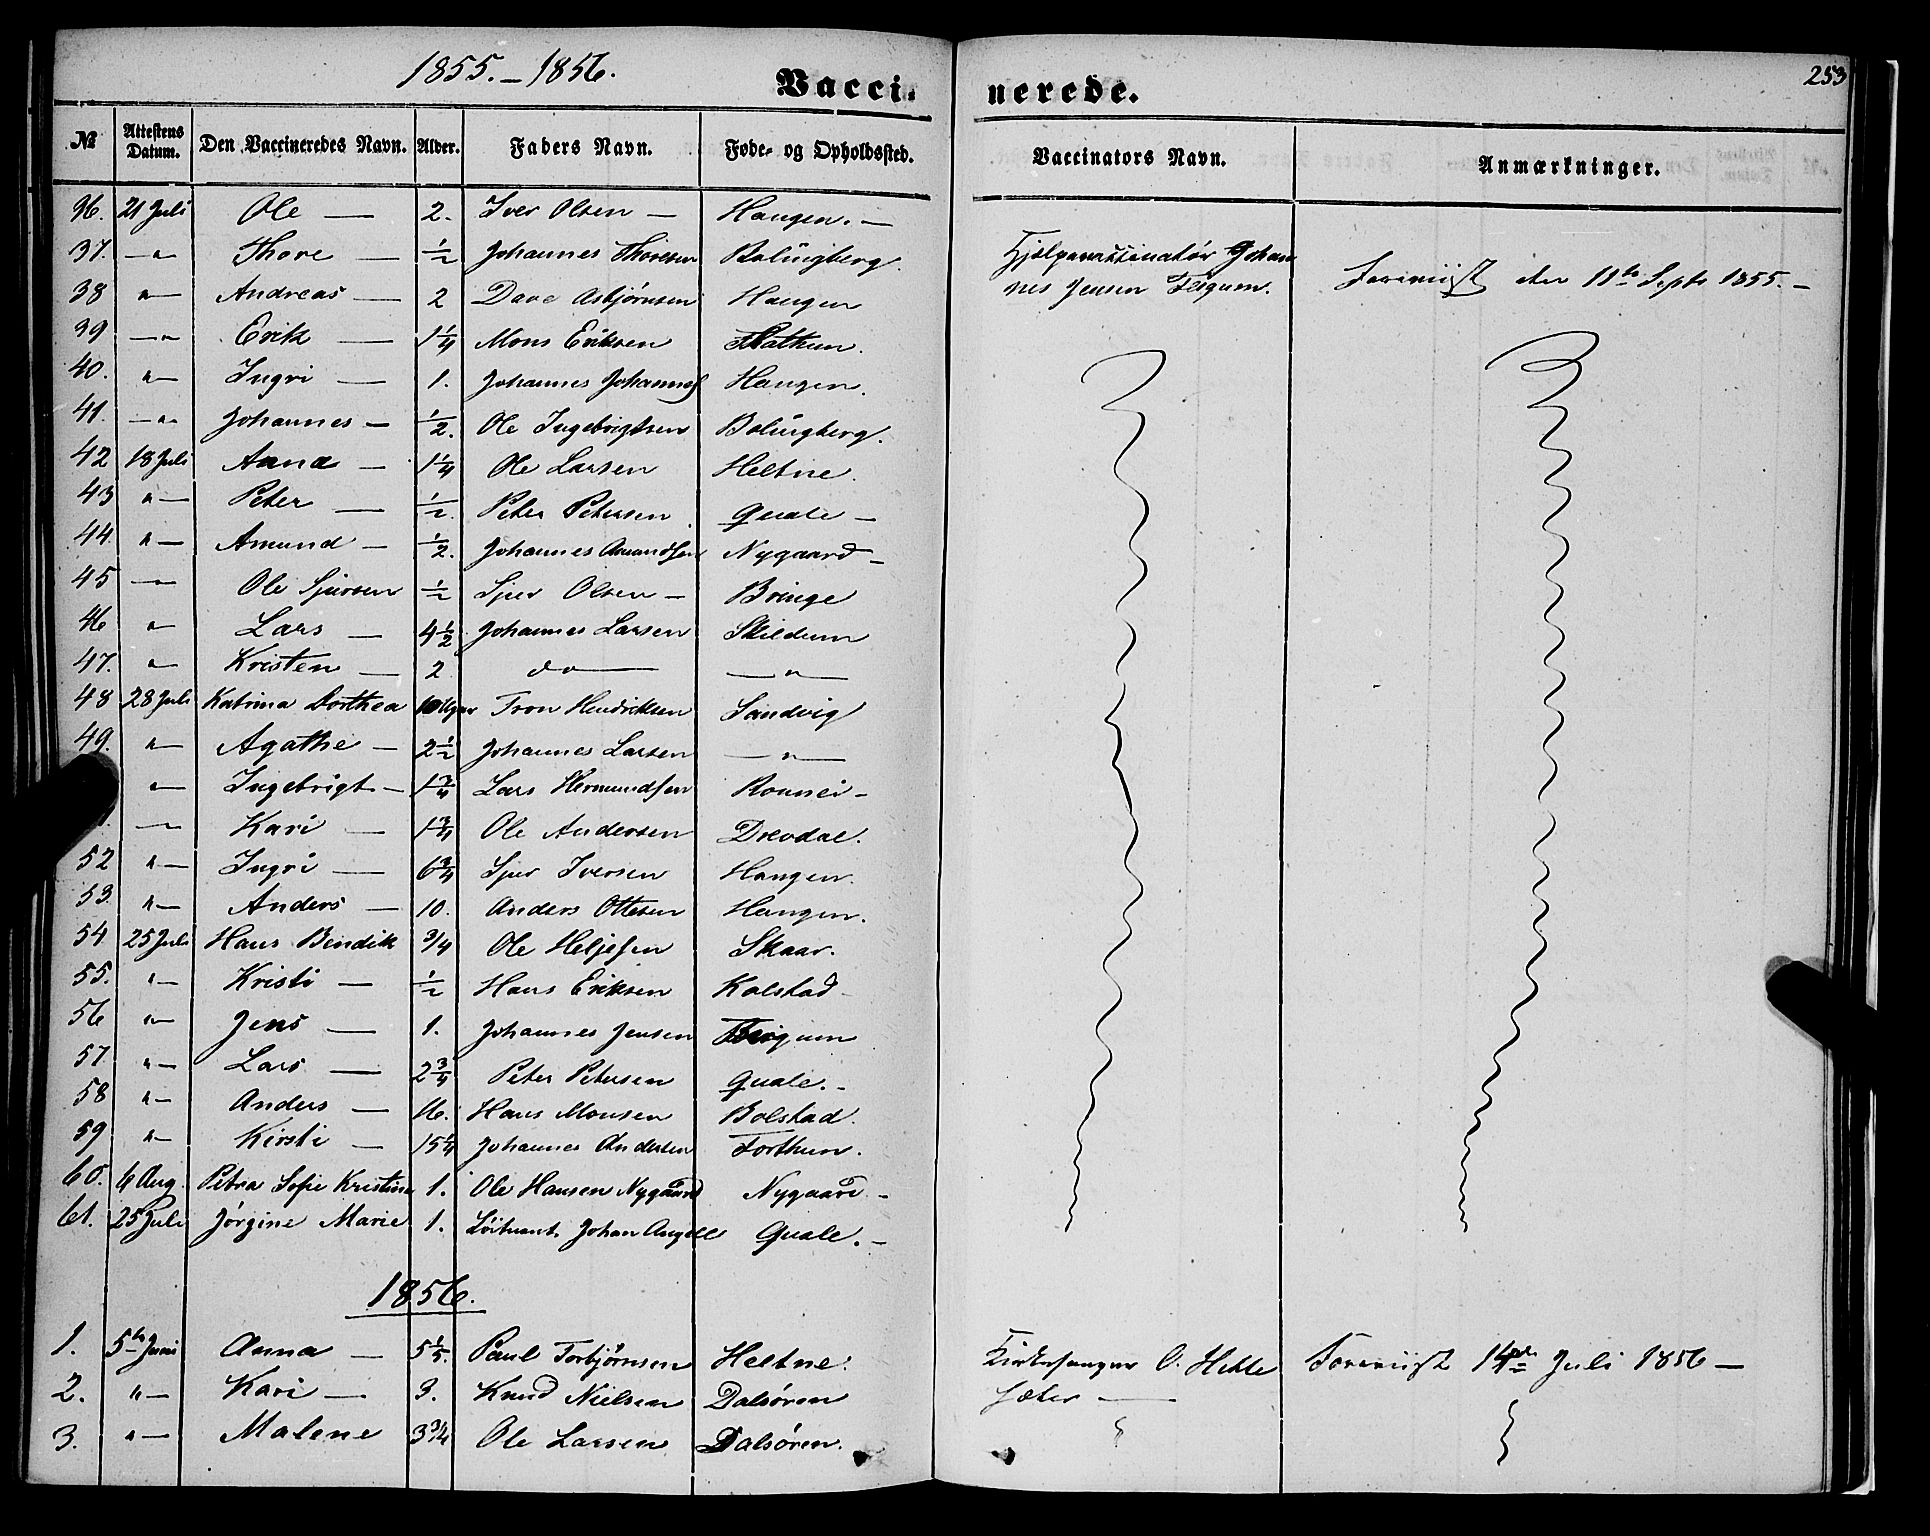 1855. – 1856.
Vaccinerede.
253
№ Attestens Datum. Den Vaccineredes Navn. Alder. Faders Navn. Føde- og Opholdssted. Vaccinators Navn. Anmærkninger.
36. 21 Juli Ole — 2. Iver Olsen — Haugen. —
37. — " Thore — ½ Johannes Thoresen Bolingberg. Hjelpevaccinatør Johan
38 " — Andreas — 2 Dave Asbjørnsen Haugen nes Jensen Fergum. Foreviist den 11te Septb 1855. —
39 — " Erik — 1¼ Mons Eriksen Flathun.
40. " — Ingri — 1. Johannes Johannes Haugen.
41. — " Johannes — ½. Ole Ingebrigtsen Bolingberg.
42 18 Juli Anna — 1¼ Ole Larsen Heltne.
43 " — Peter — ½. Peter Petersen Quale —
44. " — Amund — ½. Johannes Amundsen Nygaard —
45 — " Ole Sjursen ½ Sjur Olsen — Bringe
46 " — Lars — 4½ Johannes Larsen Skildum
47. " — Kristen — 2 do — — " —
48 28 Juli Katrina Dorthea 10 Uger Tron Hendriksen Sandvig
49. " — Agathe — 2½ Johannes Larsen — " —
" — Ingebrigt — 1¾ Lars Hermundsen Rønnei —
— " Kari — 1¾ Ole Andersen Drevdal.
52 " — Ingri — 6¾ Sjur Iversen Haugen.
53. " — Anders — 10. Anders Ottesen Haugen.
54 25 Juli Hans Bendik ¾ Ole Heljesen Skaar.
55. " — Kristi — ½ Hans Eriksen Kolstad —
56 " — Jens — 1. Johannes Jensen Fergum
57. " — Lars — 2¾ Peter Petersen Quale. —
58 " — Anders — 16. Hans Monsen Bolstad.
59 " — Kirsti — 15¼ Johannes Andersen Forthun.
60. 4 Aug. Petra Sofie Kristine 1. Ole Hansen Nygaard Nygaard —
61. 25 Juli Jørgine Marie 1. Løitnant Johan Angell Quale. —
1856.
1. 5te Juni Anna — 5⅕. Paul Torbjørnsen Heltne. Kirkesanger O. Hekle Foreviist 14de Juli 1856 —
2. " — Kari — 3. Knud Nielsen Dalsøren sæter —
3. " — Malene 3¾ Ole Larsen Dalsøren.